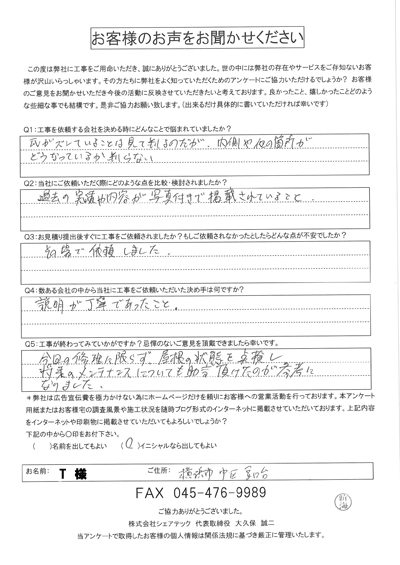 お客様のお声をお聞かせください
この度は弊社に工事をご用命いただき、誠にありがとうございました。世の中には弊社の存在やサービスをご存知ないお客
様が沢山いらっしゃいます。その方たちに弊社をよく知っていただくためのアンケートにご協力いただけるでしょうか? お客様
のご意見をお聞かせいただき今後の活動に反映させていただきたいと考えております。良かったこと、嬉しかったことどのよう
な些細な事でも結構です。是非ご協力お願い致します。(出来るだけ具体的に書いていただければ幸いです)
Q1:工事を依頼する会社を決める時にどんなことで悩まれていましたか?
瓦がズレていることは見て判るのだが、内側や他の箇所が
どうなっているか判らない
Q2:当社にご依頼いただく際にどのような点を比較・検討されましたか?
過去の実績や内容が写真付きで掲載されていること。
Q3:お見積り提出後すぐに工事をご依頼されましたか?もしご依頼されなかったとしたらどんな点が不安でしたか?
で依頼しました。
Q4:数ある会社の中から当社に工事をご依頼いただいた決め手は何ですか?
説明が丁寧であったこと。
Q5:工事が終わってみていかがですか?忌憚のないご意見を頂戴できましたら幸いです。
今回の修理に限らず、屋根の状態を点検し
将来のメンテナンスについても助言頂けたのが参考に
なりました。
*弊社は広告宣伝費を極力かけない為にホームページだけを頼りにお客様への営業活動を行っております。本アンケート
用紙またはお客様宅の調査風景や施工状況を随時ブログ形式のインターネットに掲載させていただいております。上記内容
をインターネットや印刷物に掲載させていただいてもよろしいでしょうか?
下記の中から〇印をお付下さい。
( )名前を出してもよい (〇)イニシャルなら出してもよい
お名前: T 様 ご住所: 横浜市中区
FAX 045-476-9989
ご協力ありがとうございました。
株式会社シェアテック 代表取締役 大久保 誠二
当アンケートで取得したお客様の個人情報は関係法規に基づき厳正に管理いたします。